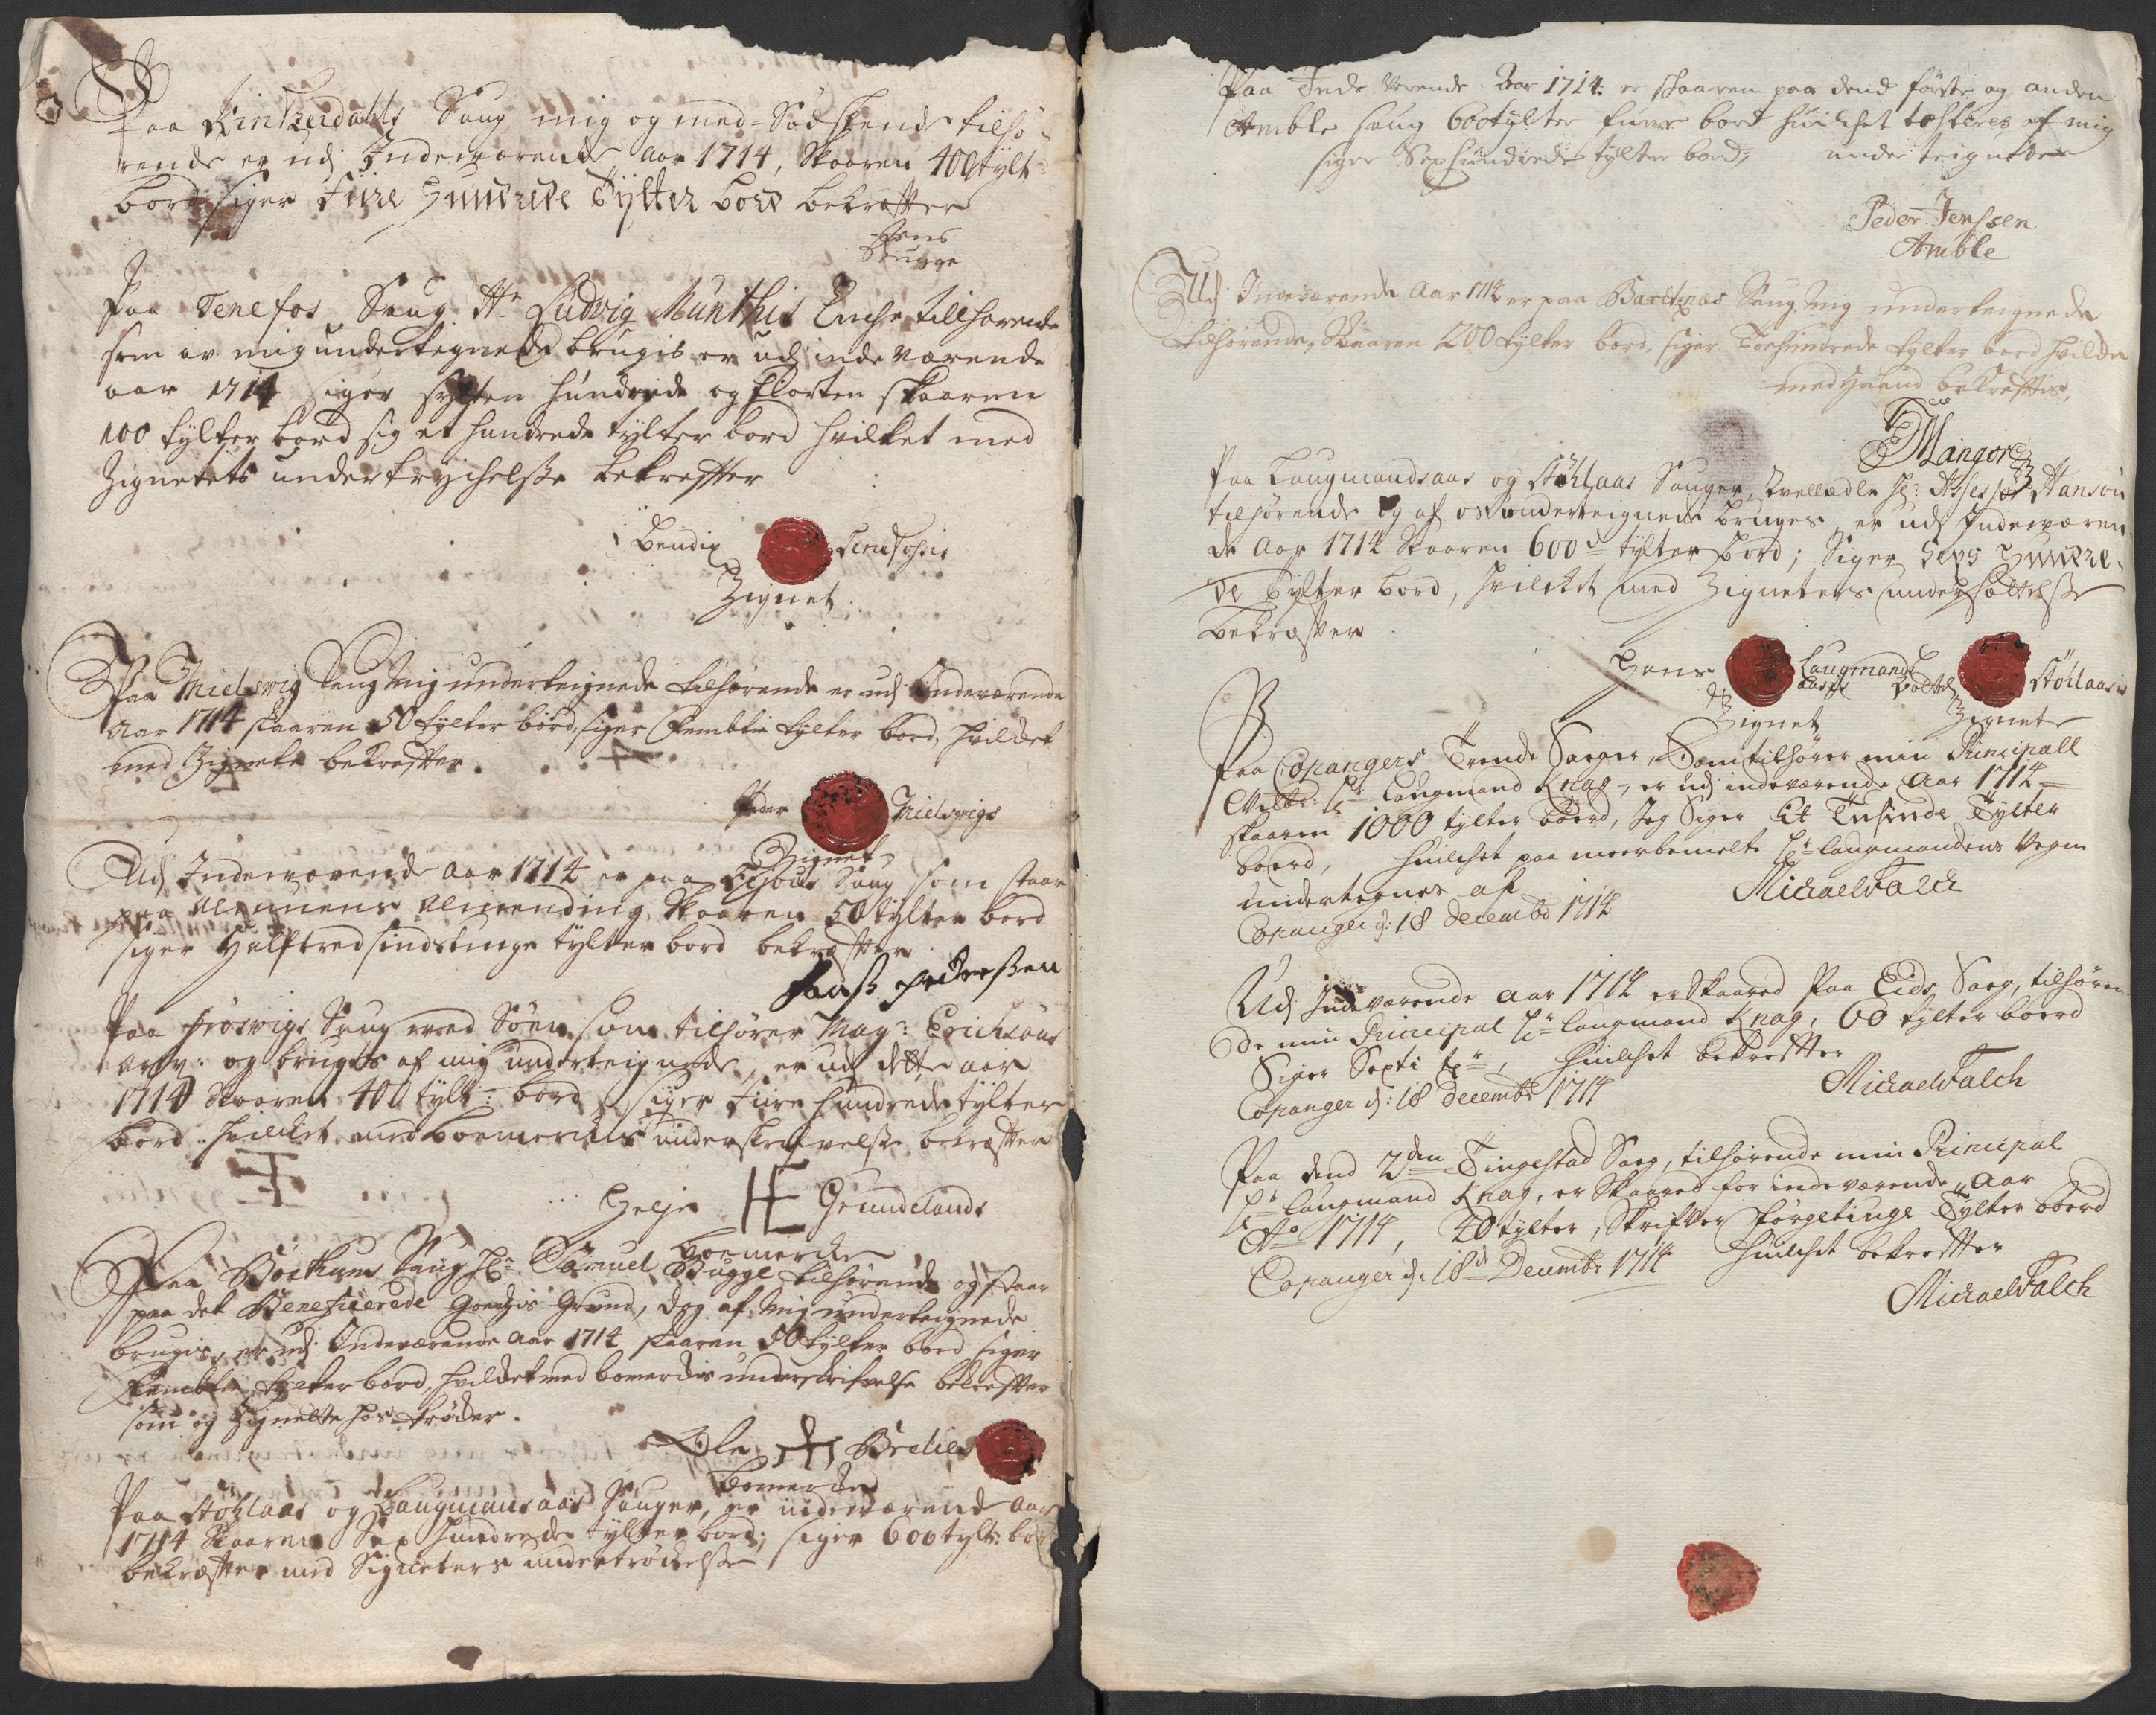 Paa Kinzedahls Saug, mig og med-Södskende tilhö-
rende er udj Indeværende Aar 1714, Skaaren 400 tylt
bord siger Fiire Hundrede Tylter bord bekræfter
Jens
Brugge
Paa Tenefos Saug Hr Ludvig Munthis Enche tillhørende
som av mig undertegnede brugis er udj inde værende
aar 1714 siger sytten hundrede og fiorten skaaren
100 tylter bord sig et hundrede tylter bord hvilket med
Zignetets undertrychelsse bekreffter
Bendix Tenefossis
Zignet
Paa Mielsvig Saug Mig underteignede tilhørende er udj Indeværende
Aar 1714 skaaren 50 tylter bord, siger Femtie tylter bord, hvilket
med Zignete bekrefter.
Peder Mielsvigs
Zignet
Udj Indeværende Aar 1714 er paa Saug som staar
paa Almuens Almending, Skaaren 50 tylter bord
siger Halftredsindstiuge tylter bord bekræfter
Hanss Pederssen
Paa Frøsvigs Saug ved Söen som tilhører Mag: Erichsöns
Arv: og bruges af mig underteignede, er udj dette aar
1714 Skaaren 400 tylt: bord siger Fiire hundrede tylter
bord. hvilket med boemerckes underskrivelsse bekræfter
Helje HE Grundelands
boemercke
Paa Böthums Saug Hr: Samuel Bugge tilhørende og staar
paa det Beneficerede Goedzis Grund, dog af Mig underteignede
brugis, er udj Indeværende Aar 1714 skaaren 50 tylter bord siger
Femtie tylter bord, hvilket med bomerckis underskrifvelse bekrefter
som og Zignette hos trøder.
Ole Brelies
bomercke
Paa Stöhlaas og Laugmansaas Sauger, er indeværende aar
1714 Skaaren Sex Hundrede tylter bord; siger 600 tylt: bord
bekræfter med Signeters undertröckelsse
Paa Inde Værende Aar 1714 er skaaren paa dend förste og anden
Amble Saug 600 tylter furre bord huilchet testeres af mig
siger Sex Hundrede tylter bord; under teignede
Peder Jenssen
Amble
Udj Indeværende Aar 1714 er paa Baritznæs Saug, Mig underteignede
tilhørende, Skaaren 200 tylter bord, siger Toehundrede tylter bord hvilcke
med Haand bekreftis,
Mangor
Paa Laugmandsaas og Stöhlaas Sauger, Velædle Hr: Assessor Hansön
tilhørende og af os underteignede bruges, er udj Indeværen-
de Aar 1714 Skaaren 600de tylter bord; Siger Sexs Hundre-
de Tylter bord, hvilcket med Zigneters undersættelsse
bekræfter
Hans Laugmands
aases Botel Stöhlaases
Zignet Zignet
Paa Copangers Trende Sauger, Som tilhører min Principall
Velb: Hr Laugmand Knag, er udj indeværende Aar 1714
skaaren 1000 tylter boerd, Jeg Siger Et Tusinde Tylter
boerd, huilchet paa meerbemelte Hr Laugmandens Vegne
undertegnes af
Copanger d: 18 Decembr 1714 Michael Falch
Udj Indeværende Aar 1714 er Skaared Paa Eids Saug, tilhøren-
de min Principal Hr Laugmand Knag, 60 tylter boerd
Siger Sexti tr, huilchet bekrefter
Copanger d: 18 Decembr 1714 Michael Falch
Paa dend 2den Tingestad Saug, tilhörende min Principal
Hr Laugmand Knag, er Skaared for indeværende Aar
Ao 1714, 40 tylter, Skrifver Förgetiuge Tylter boerd
huilchet bekrefter
Copanger d: 18de Decembr 1714
Michael Falch